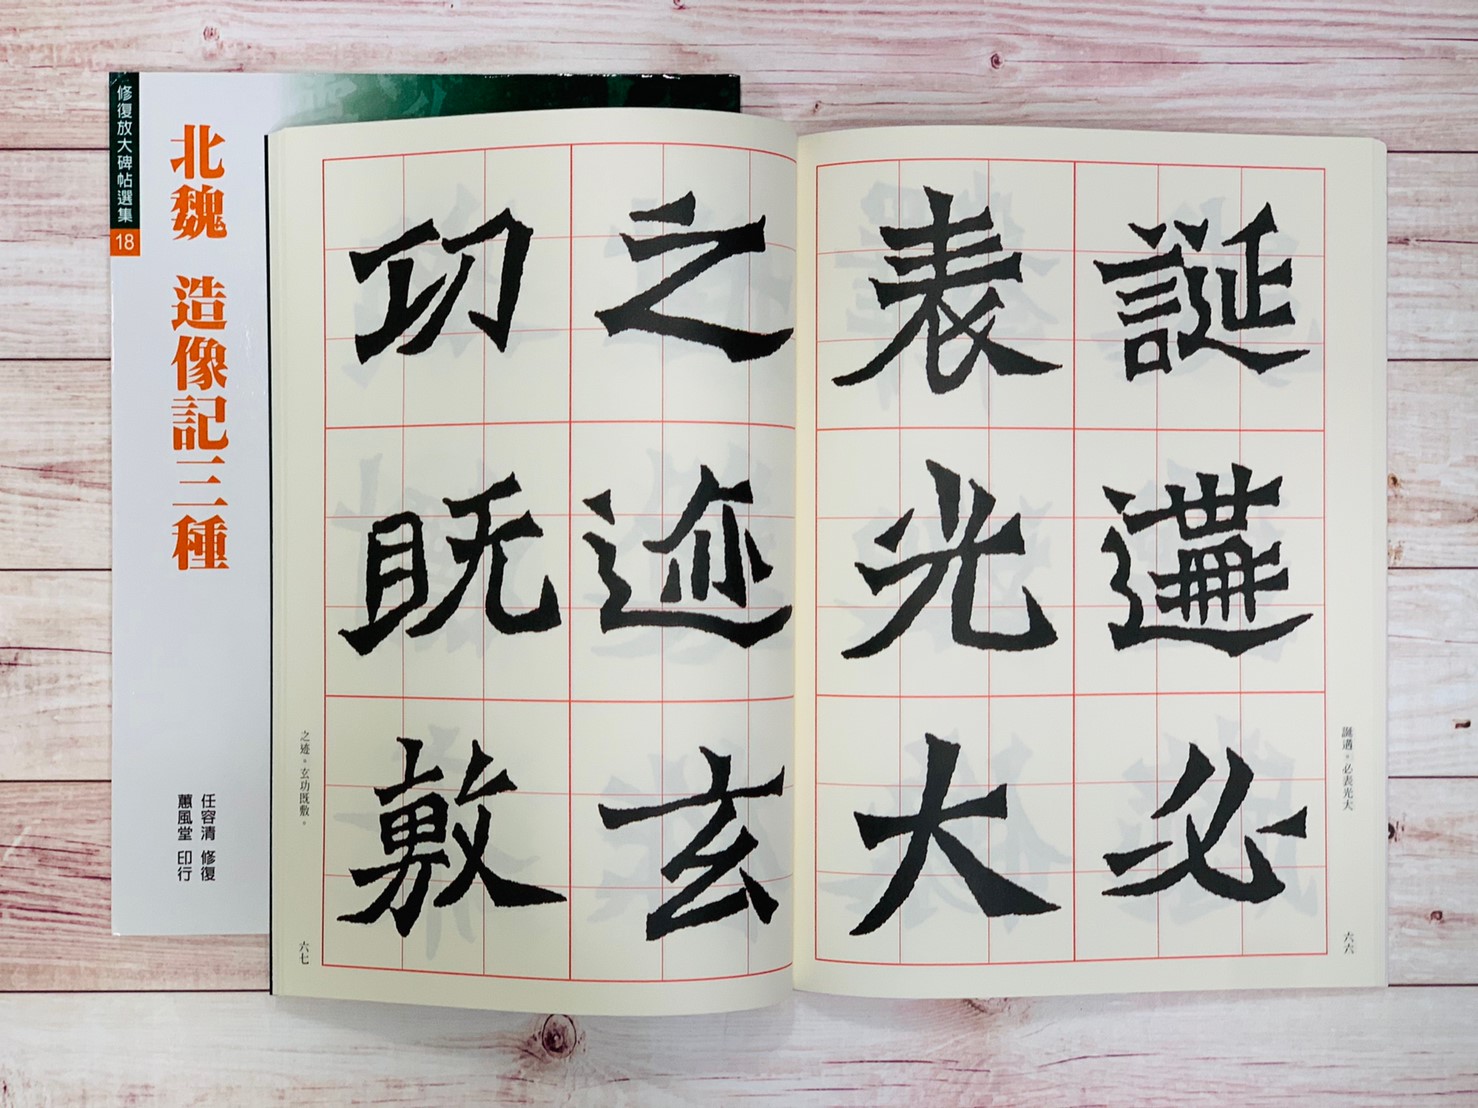 修復放大碑帖選集
18
北魏 造像記三種
任容清 修復
蕙風堂 印行
誕遘必
表光大
誕遘。必表光大
六六
之迹玄
功既敷
之迹。玄功既敷。
六七